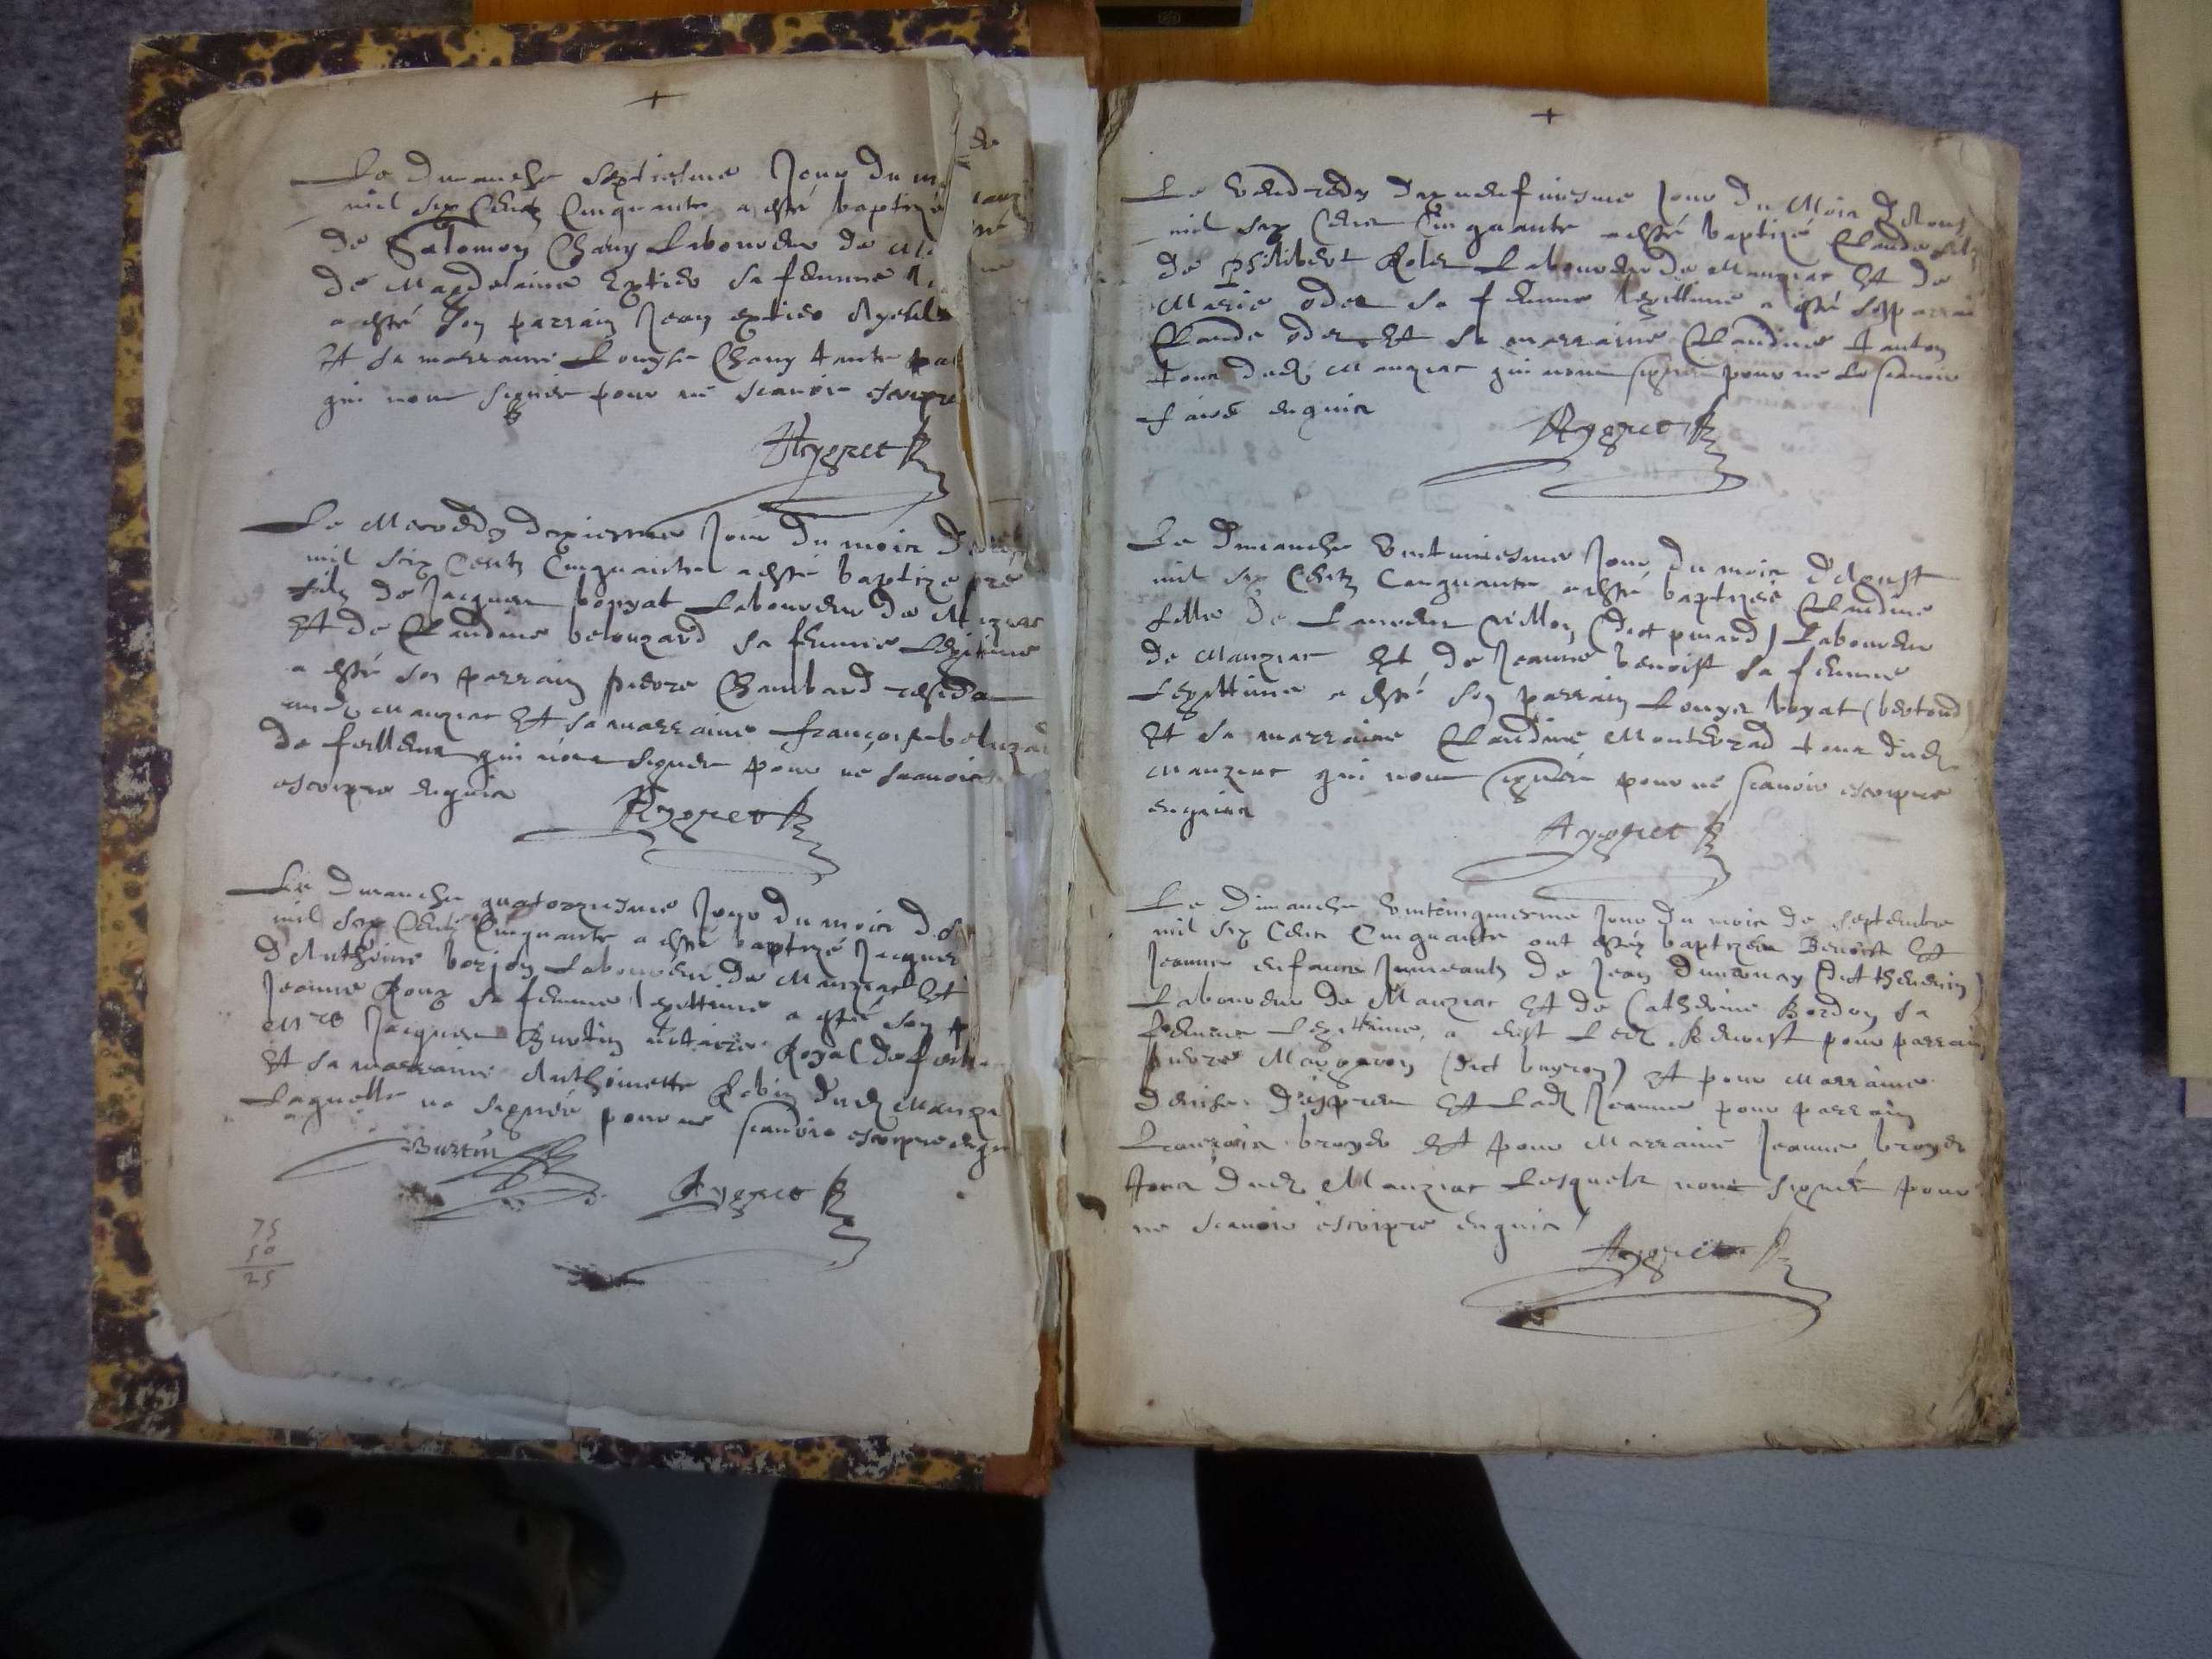 Le dimanche septiesme Jour du m
mil six Centz Cinquante a esté baptizé
de Salomon Chany Laboureur de M
de Magdelaine sa femme
a esté son parrain Jean
Et sa marraine Louyse Chany tante
qui nont signer pour ne scavoir escripre
Aygret
Le Mercredy dixiesme Jour du mois d
mil six Centz Cinquante a esté baptize
filz de Jacques boyat Laboureur de
Et de Claudine belouzard sa femme Legitime
a esté son parrain pierre Chambard
Manziat Et sa marraine françoise
de qui nont signer pour ne scavoir
escripre enquis
Aygret
Le dimanche quatorziesme Jour du mois d
mil six Centz Cinquante a esté baptizé Jacques
d'Anthoine borjon Laboureur de Manziat Et
Jeanne Roux sa femme legittime a esté son p
Mre Jacques Burtin notaire Royal de
Et sa marraine Anthoinette Robin dud Manzi
Laquelle na signée pour ne scavoir escripre
Burtin
Aygret
75
50
25
de
Le vendredy dixneufviesme Jour du Mois d'Aoust
mil six Cens Cinquante a esté baptizé Claude filz
de philibert Laboureur de Manziat Et de
Marie oder sa femme legittime a esté son parrain
Claude oder Et sa marraine Claudine tanton
tous dud Manziat qui nont signer pour ne le scavoir
faire enquis
Aygret
Le dimanche vintuniesme Jour du mois d'Aoust
mil six Centz Cinquante a esté baptizée Claudine
fille de Laurens (dict pinard) Laboureur
de Manziat Et de Jeanne benoist sa femme
Legittime a esté son parrain Louys boyat (bertoud)
Et sa marraine Claudine Montbrad tous dud
Manziat qui nont signer pour ne scavoir escripre
enquis
Aygret
Le Dimanche vintcinquiesme Jour du mois de septembre
mil six Cens Cinquante ont estéz baptizés Benoist Et
Jeanne enfans Jumeaulx de Jean (dict thevenin)
Laboureur de Manziat Et de Catherine Bordon sa
femme Legittime, a led Benoist pour parrain
pierre (dict buyron) Et pour Marraine
denise Et lad Jeanne pour parrain
françois broyer Et pour Marraine Jeanne broyer
tous dud Manziat Lesquelz nont signer pour
ne scavoir escripre enquis
Aygret